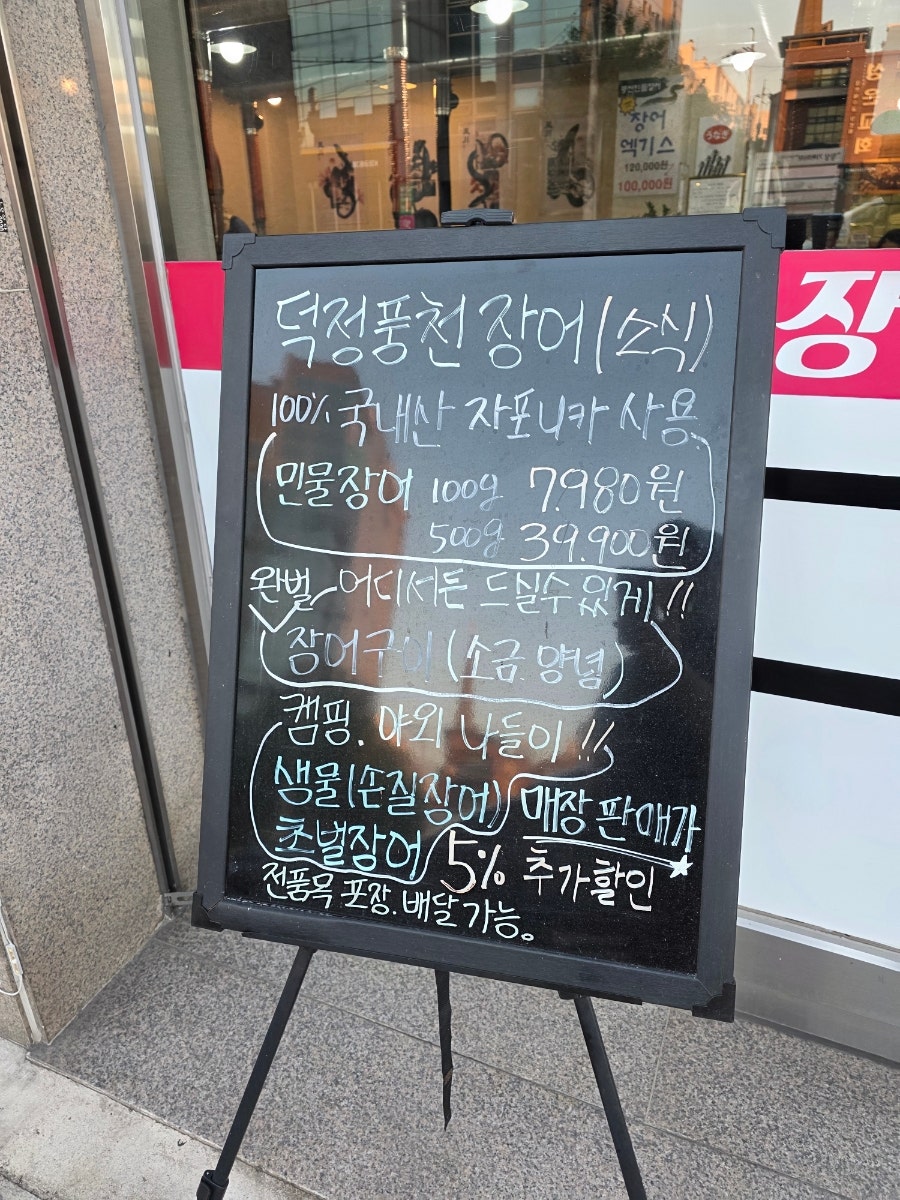 장어
엑기스
120,000원
100,000원
장
덕정풍천 장어 (소식)
100% 국내산 자포니카 사용
민물장어 100g 7.980원
500g 39.900원
완벌 어디서든 드실수 있게 !!
장어구이 (소금.양념)
캠핑. 야외 나들이 !!
생물(손질장어) 매장 판매가
초벌장어 5% 추가할인
전품목 포장. 배달 가능。